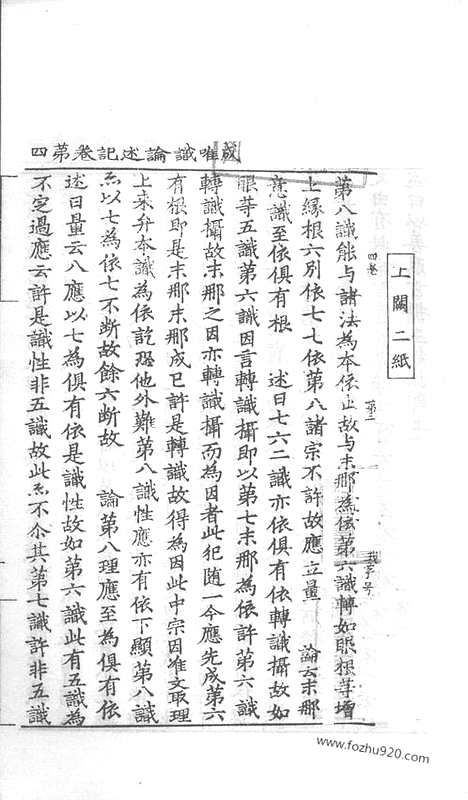 上闕二紙
第八識能与諸法為本依止故与末那為依第六識轉如眼根䓁增
上緣根六別依七七依第八諸宗不許故應立量　論云末那
意識至依俱有根　述曰七六二識亦依俱有依轉識攝故如
眼䓁五識第六識因言轉識攝即以第七末那為依許第六識
轉識攝故末那之因亦轉識攝而為因者此犯隨一今應先成第六
有根即是末那末那成已許是轉識故得為因此中宗因准文取理
上來升本識為依訖恐他外難第八識性應亦有依下顯第八識
亦以七為依七不断故餘六断故　論第八理應至為俱有依
述曰量云八應以七為俱有依是識性故如第六識此有五識為
不定過應云許是識性非五識故此亦不尒其第七識許非五識
成唯識論述記卷第四
四卷
第三
我字号
www.fozhu920.com